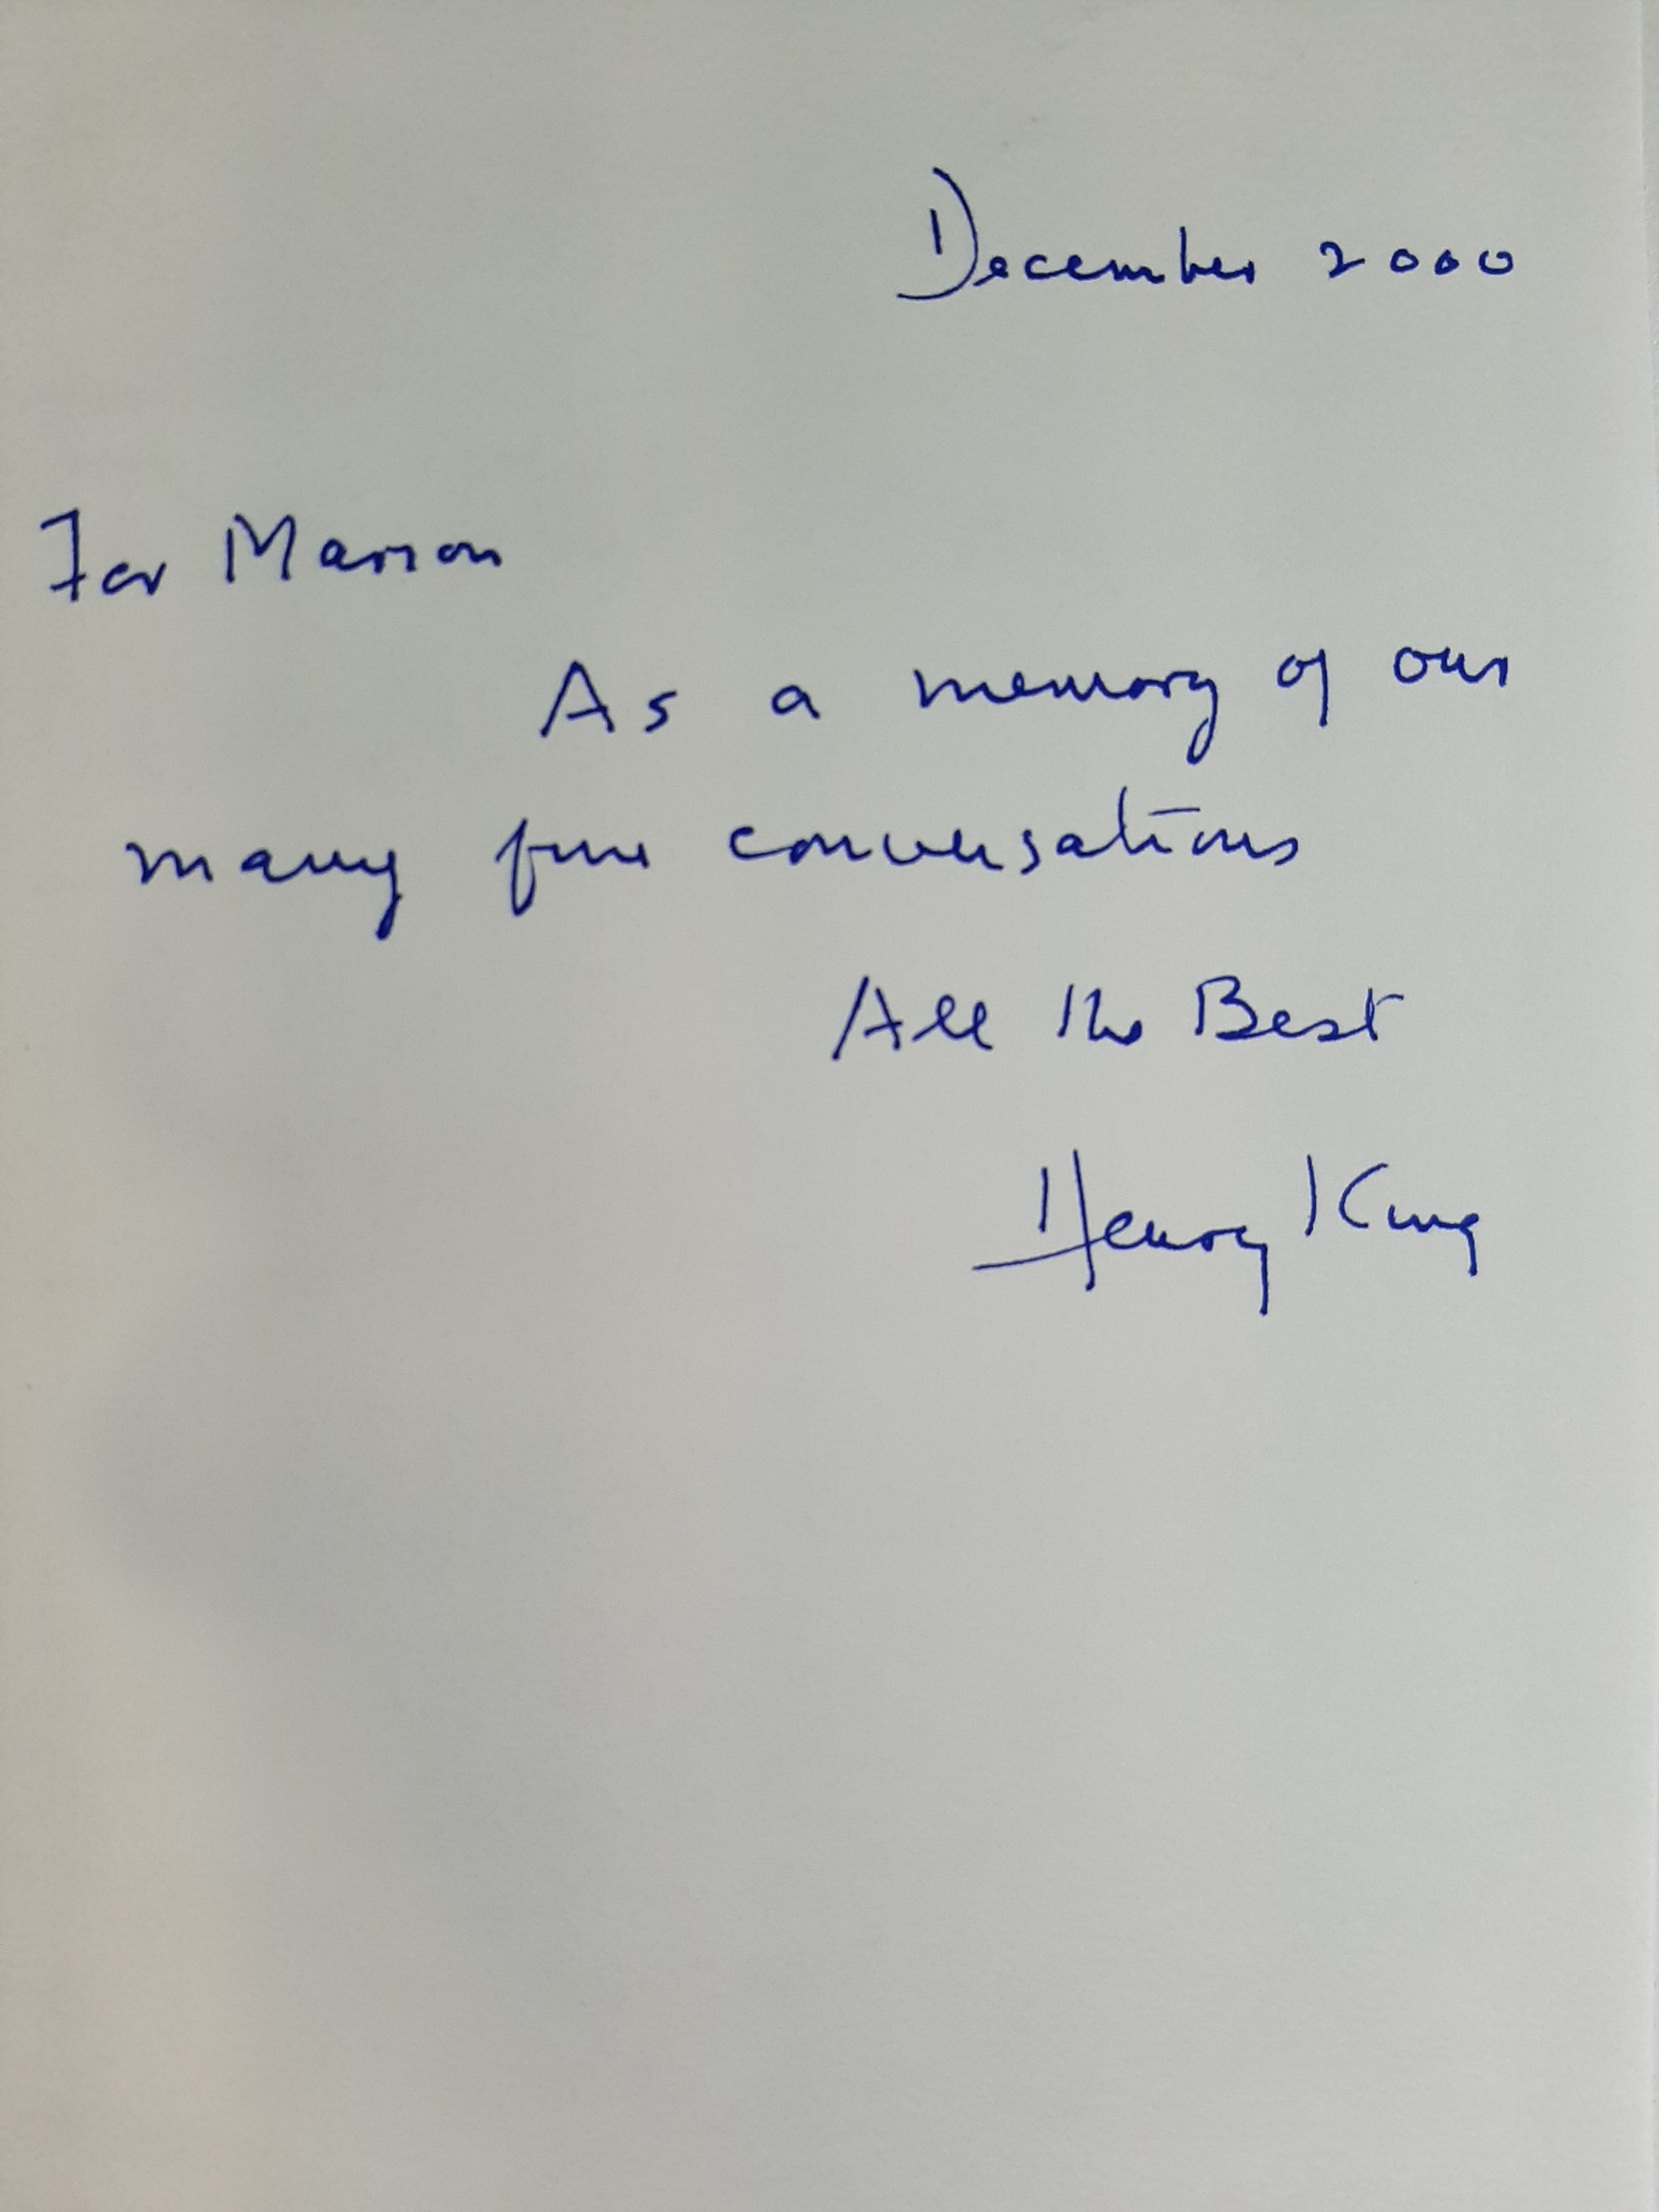 December 2000
For Marion
As a memory of our
many fine conversations
All the Best
Henry King